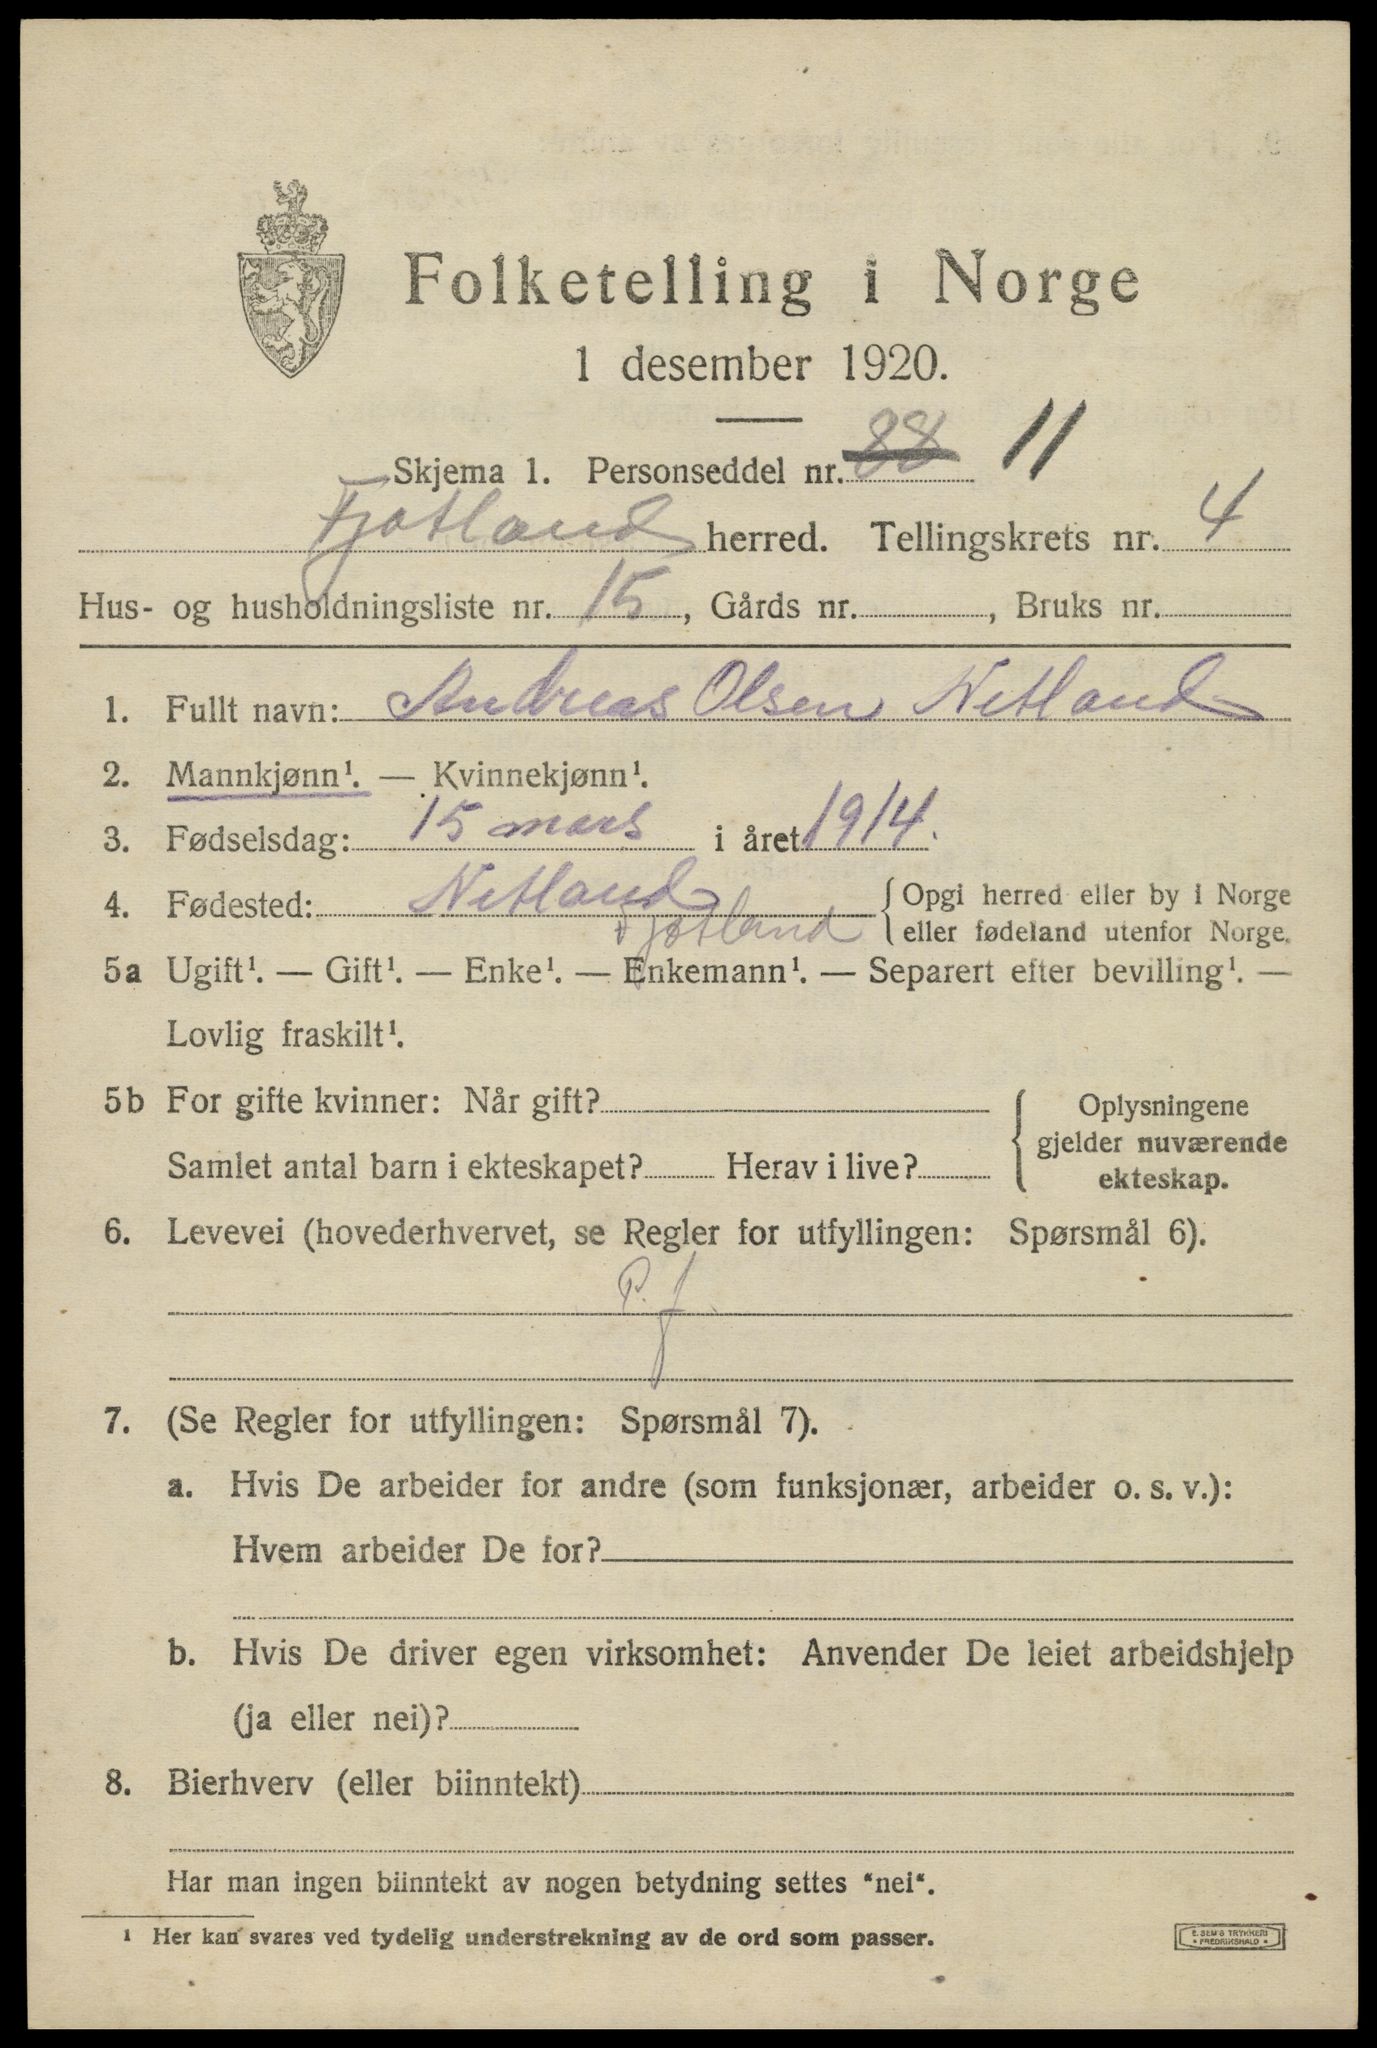 Folketelling i Norge
1 desember 1920.
Skjema 1. Personseddel nr. 88 11
Fjotland herred. Tellingskrets nr. 4
Hus- og husholdningsliste nr. 15, Gårds nr. , Bruks nr.
1. Fullt navn: Andreas Olsen Netland
2. Mannkjønn¹. — Kvinnekjønn¹.
3. Fødselsdag: 15 mars i året 1914.
4. Fødested: Netland { Opgi herred eller by i Norge
Fjotland eller fødeland utenfor Norge.
5a Ugift¹. — Gift¹. — Enke¹. — Enkemann¹. — Separert efter bevilling¹. —
Lovlig fraskilt¹.
5b For gifte kvinner: Når gift? { Oplysningene
gjelder nuværende
Samlet antal barn i ekteskapet? Herav i live? ekteskap.
6. Levevei (hovederhvervet, se Regler for utfyllingen: Spørsmål 6).
P. f.
7. (Se Regler for utfyllingen: Spørsmål 7).
a. Hvis De arbeider for andre (som funksjonær, arbeider o. s. v.):
Hvem arbeider De for?
b. Hvis De driver egen virksomhet: Anvender De leiet arbeidshjelp
(ja eller nei)?
8. Bierhverv (eller biinntekt)
Har man ingen biinntekt av nogen betydning settes "nei".
¹ Her kan svares ved tydelig understrekning av de ord som passer.
E. SEMS TRYKKERI
* FREDRIKSHALD *